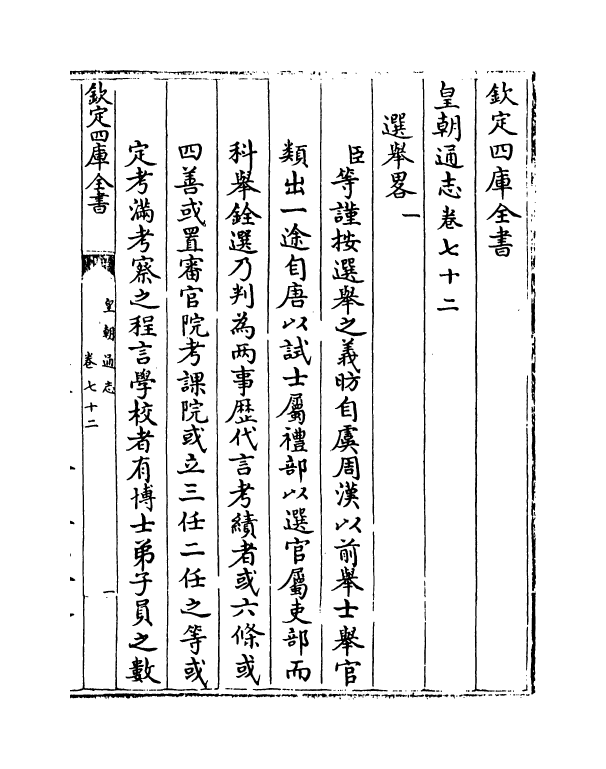 欽定四庫全書
皇朝通志卷七十二
選舉畧一
臣等謹按選舉之義昉自虞周漢以前舉士舉官
類出一途自唐以試士屬禮部以選官屬吏部而
科舉銓選乃判為兩事歴代言考績者或六條或
四善或置審官院考課院或立三任二任之等或
定考滿考察之程言學校者有博士弟子員之數
欽定四庫全書
皇朝通志
卷七十二
一